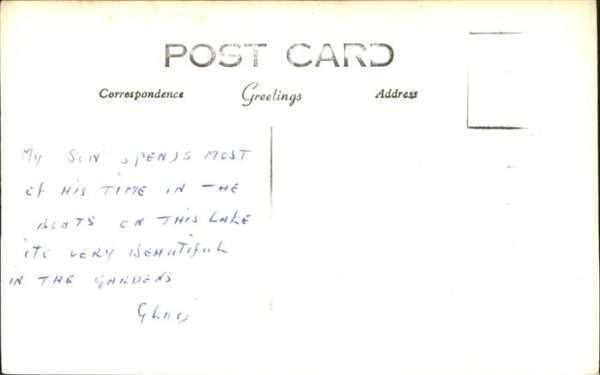 POST CARD
Correspondence Greetings Address
My SON SPENDS MOST
of HIS TIME IN THE
BOATS ON THIS LAKE
ITS VERY BEAUTIFUL
IN THE GARDENS